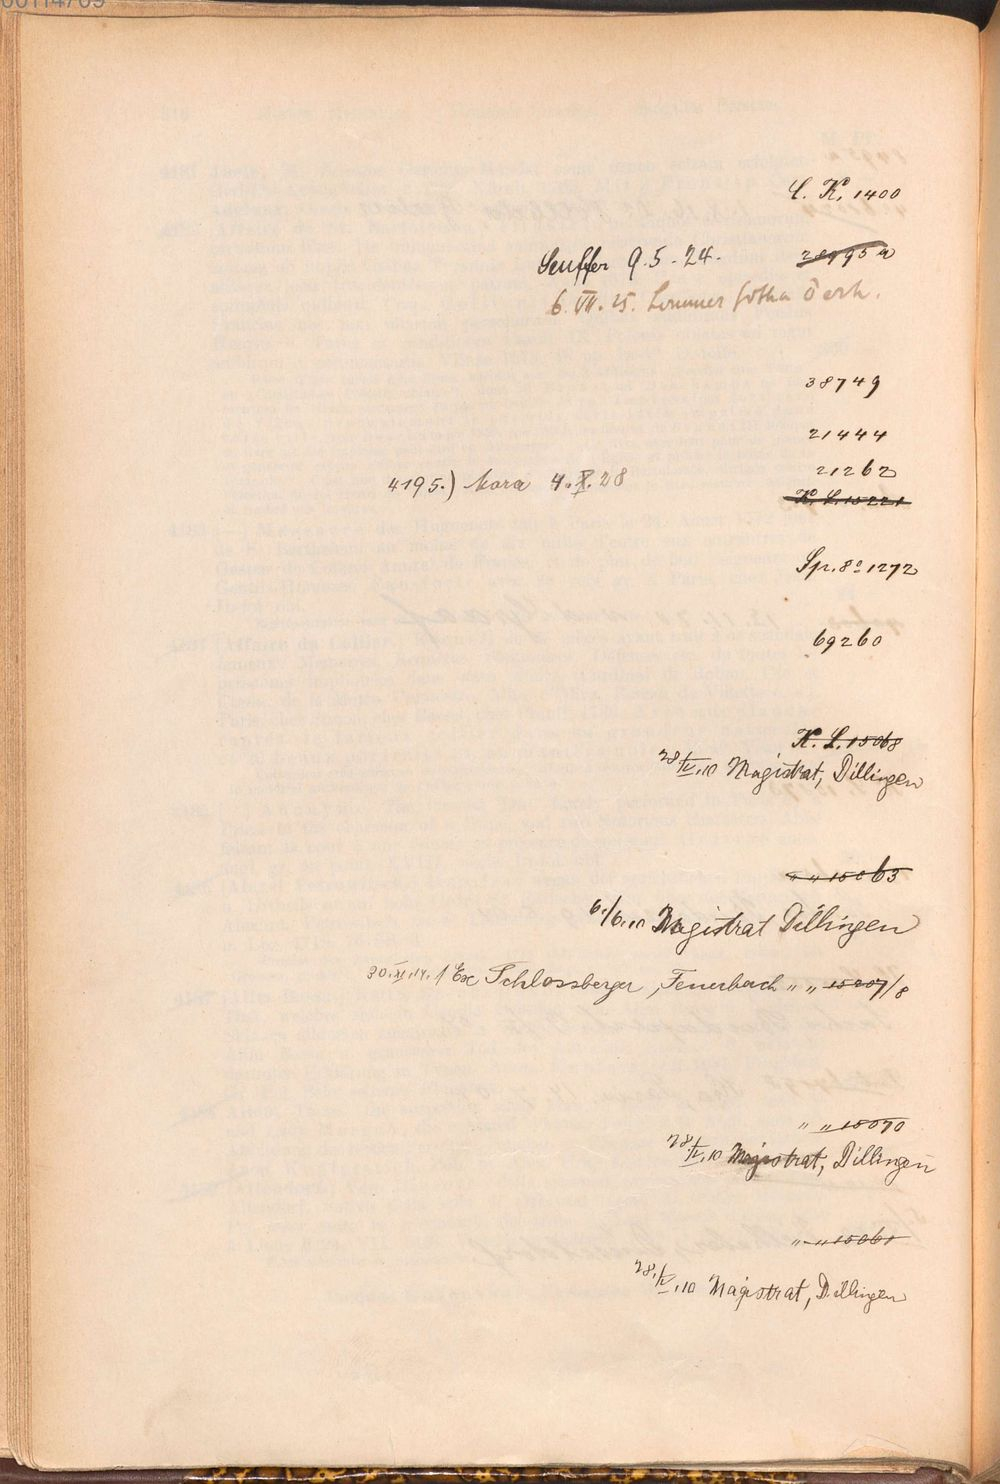 00114705
C. K. 1400
Seuffer 9.5.24. ~~28995a~~
6. VII. 25. Lommer Gotha
38749
21444
21262
4195.) Mara 4. X. 28
~~K. L. 15221~~
Sp. 8° 1272
69260
~~K. L. 15068~~
28/IV.10 Magistrat, Dillingen
~~" " 15063~~
6./6.10 Magistrat Dillingen
30.XI.14. 1 Ex Schlossberger, Feuerbach " " ~~15207~~/8
" " ~~15070~~
28/IV.10 Magistrat, Dillingen
~~" " 15061~~
28./IV.10 Magistrat, Dillingen